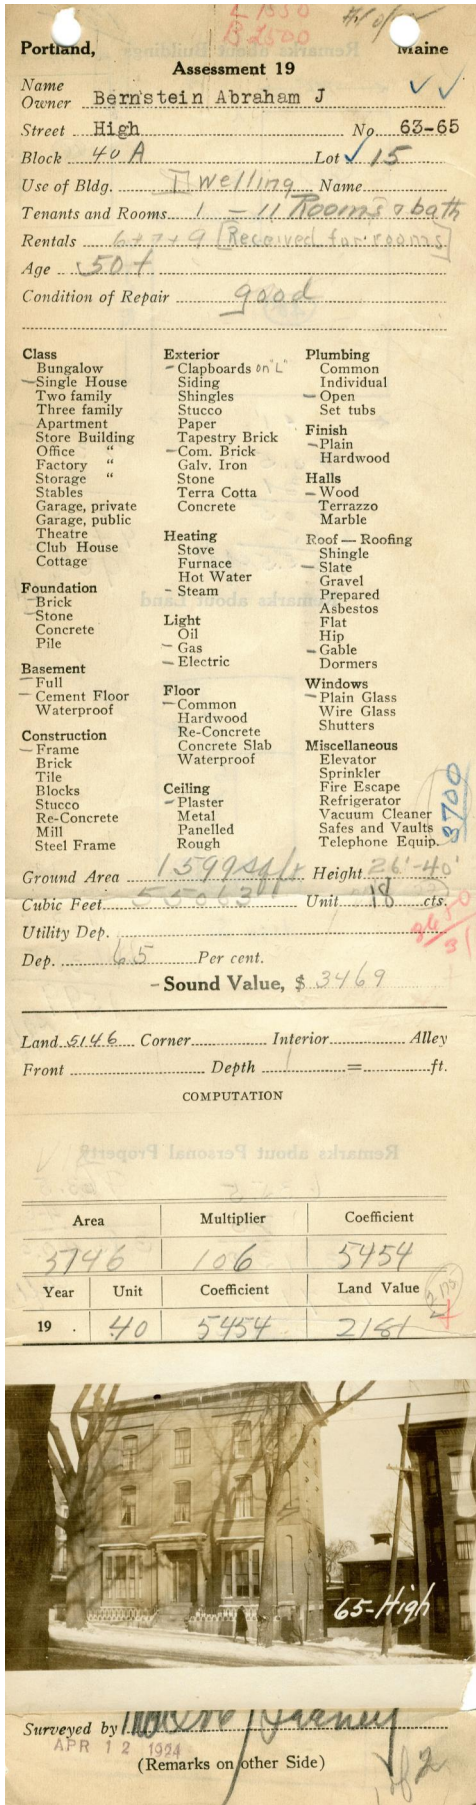 L 1350
B 2500
Portland, Maine
Assessment 19
Name
Owner Bernstein Abraham J
Street High No. 63-65
Block 40 A Lot 15
Use of Bldg. Dwelling Name
Tenants and Rooms 1 - 11 Rooms & bath
Rentals 6+7+9 [Received for rooms]
Age 50+
Condition of Repair good
Class
Bungalow
Single House
Two family
Three family
Apartment
Store Building
Office "
Factory "
Storage "
Stables
Garage, private
Garage, public
Theatre
Club House
Cottage
Foundation
Brick
Stone
Concrete
Pile
Basement
Full
Cement Floor
Waterproof
Construction
Frame
Brick
Tile
Blocks
Stucco
Re-Concrete
Mill
Steel Frame
Exterior
Clapboards on "L"
Siding
Shingles
Stucco
Paper
Tapestry Brick
Com. Brick
Galv. Iron
Stone
Terra Cotta
Concrete
Heating
Stove
Furnace
Hot Water
Steam
Light
Oil
Gas
Electric
Floor
Common
Hardwood
Re-Concrete
Concrete Slab
Waterproof
Ceiling
Plaster
Metal
Panelled
Rough
Plumbing
Common
Individual
Open
Set tubs
Finish
Plain
Hardwood
Halls
Wood
Terrazzo
Marble
Roof — Roofing
Shingle
Slate
Gravel
Prepared
Asbestos
Flat
Hip
Gable
Dormers
Windows
Plain Glass
Wire Glass
Shutters
Miscellaneous
Elevator
Sprinkler
Fire Escape
Refrigerator
Vacuum Cleaner
Safes and Vaults
Telephone Equip.
3700
Ground Area 1599 sq ft Height 26'-40'
Cubic Feet 55063 Unit 18 cts.
Utility Dep.
Dep. 65 Per cent.
Sound Value, $ 3469
Land 5146 Corner Interior Alley
Front Depth = ft.
COMPUTATION
Remarks about Personal Property
Area Multiplier Coefficient
5146 106 5454
Year Unit Coefficient Land Value
19 . .40 5454 2181
2175
65-High
Surveyed by
APR 12 1924
(Remarks on other Side)
of 2